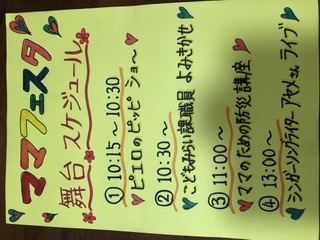 ママフェスタ
舞台 スケジュール
① 10:15〜10:30
ピエロのピッピ ショ〜
② 10:30〜
こどもみらい課職員 よみきかせ
③ 11:00〜
ママのための防災講座
④ 13:00〜
シンガーソングライター アセムさん ライブ